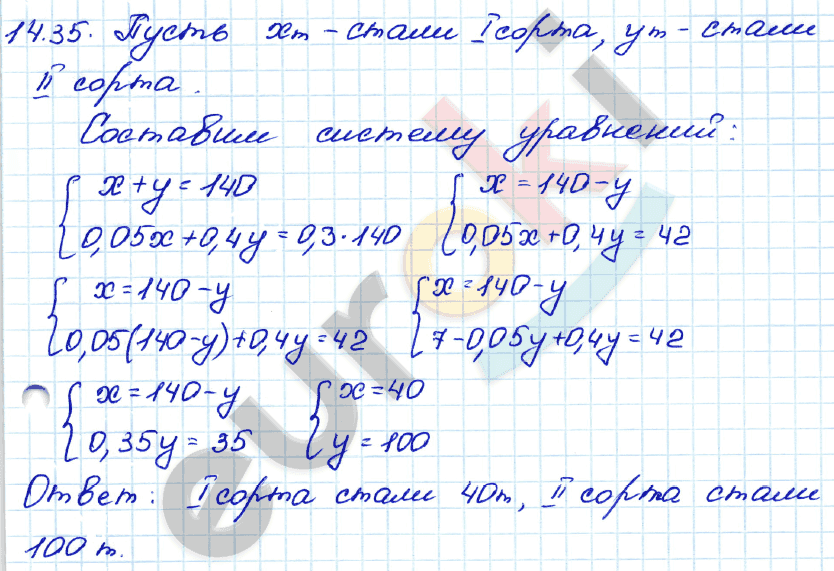 14.35. Пусть xт - стали I сорта, yт - стали
II сорта.
Составим систему уравнений:
{ x + y = 140
0,05x + 0,4y = 0,3·140
{ x = 140 - y
0,05x + 0,4y = 42
{ x = 140 - y
0,05(140 - y) + 0,4y = 42
{ x = 140 - y
7 - 0,05y + 0,4y = 42
{ x = 140 - y
0,35y = 35
{ x = 40
y = 100
Ответ: I сорта стали 40т, II сорта стали
100 т.
euroki